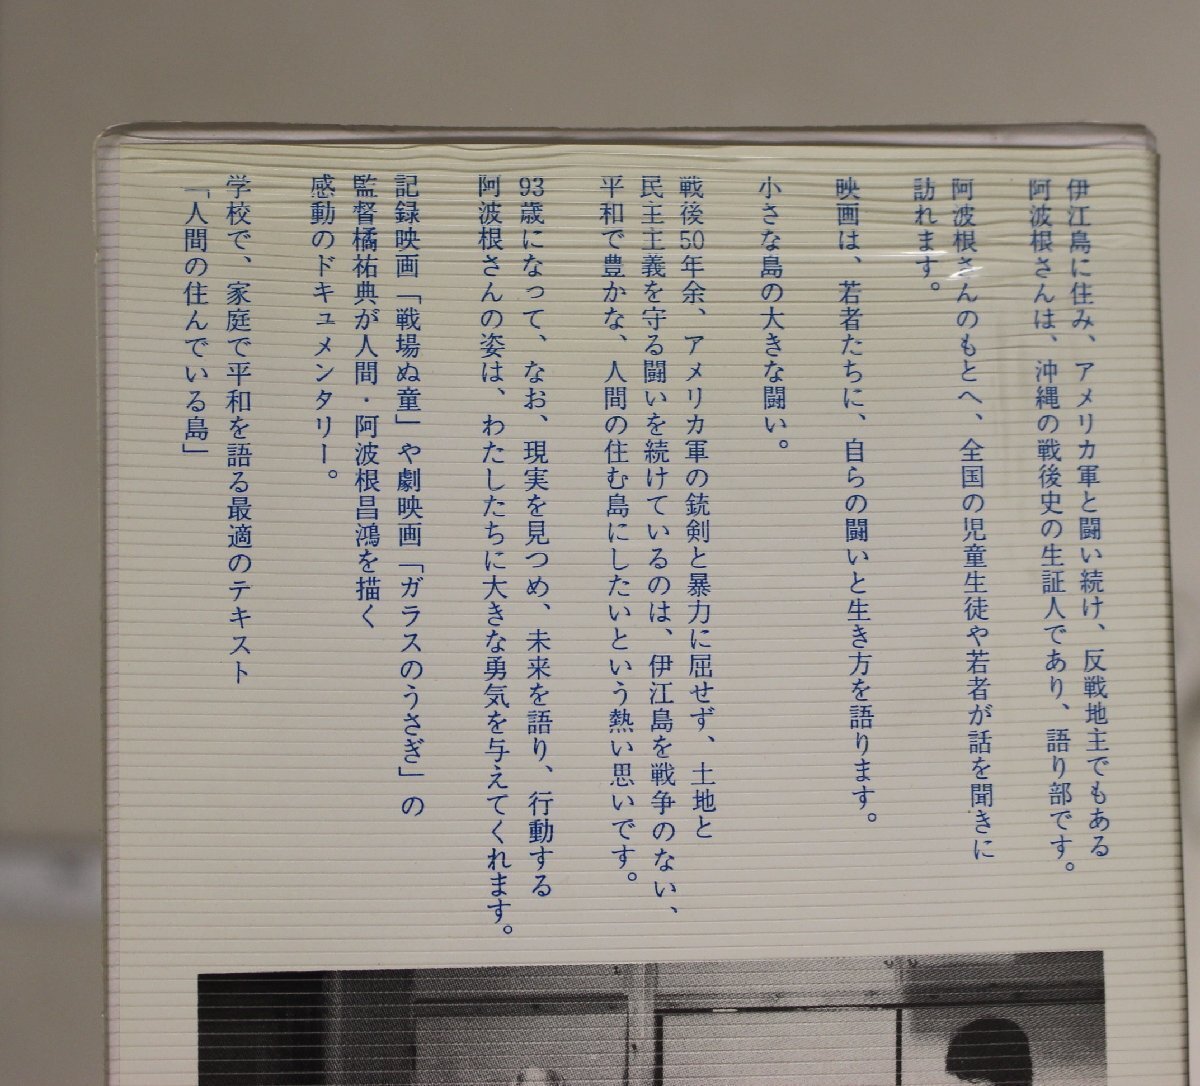 伊江島に住み、アメリカ軍と闘い続け、反戦地主でもある
阿波根さんは、沖縄の戦後史の生証人であり、語り部です。
阿波根さんのもとへ、全国の児童生徒や若者が話を聞きに
訪れます。
映画は、若者たちに、自らの闘いと生き方を語ります。
小さな島の大きな闘い。
戦後50年余、アメリカ軍の銃剣と暴力に屈せず、土地と
民主主義を守る闘いを続けているのは、伊江島を戦争のない、
平和で豊かな、人間の住む島にしたいという熱い思いです。
93歳になって、なお、現実を見つめ、未来を語り、行動する
阿波根さんの姿は、わたしたちに大きな勇気を与えてくれます。
記録映画「戦場ぬ童」や劇映画「ガラスのうさぎ」の
監督橘祐典が人間・阿波根昌鴻を描く
感動のドキュメンタリー。
学校で、家庭で平和を語る最適のテキスト
「人間の住んでいる島」